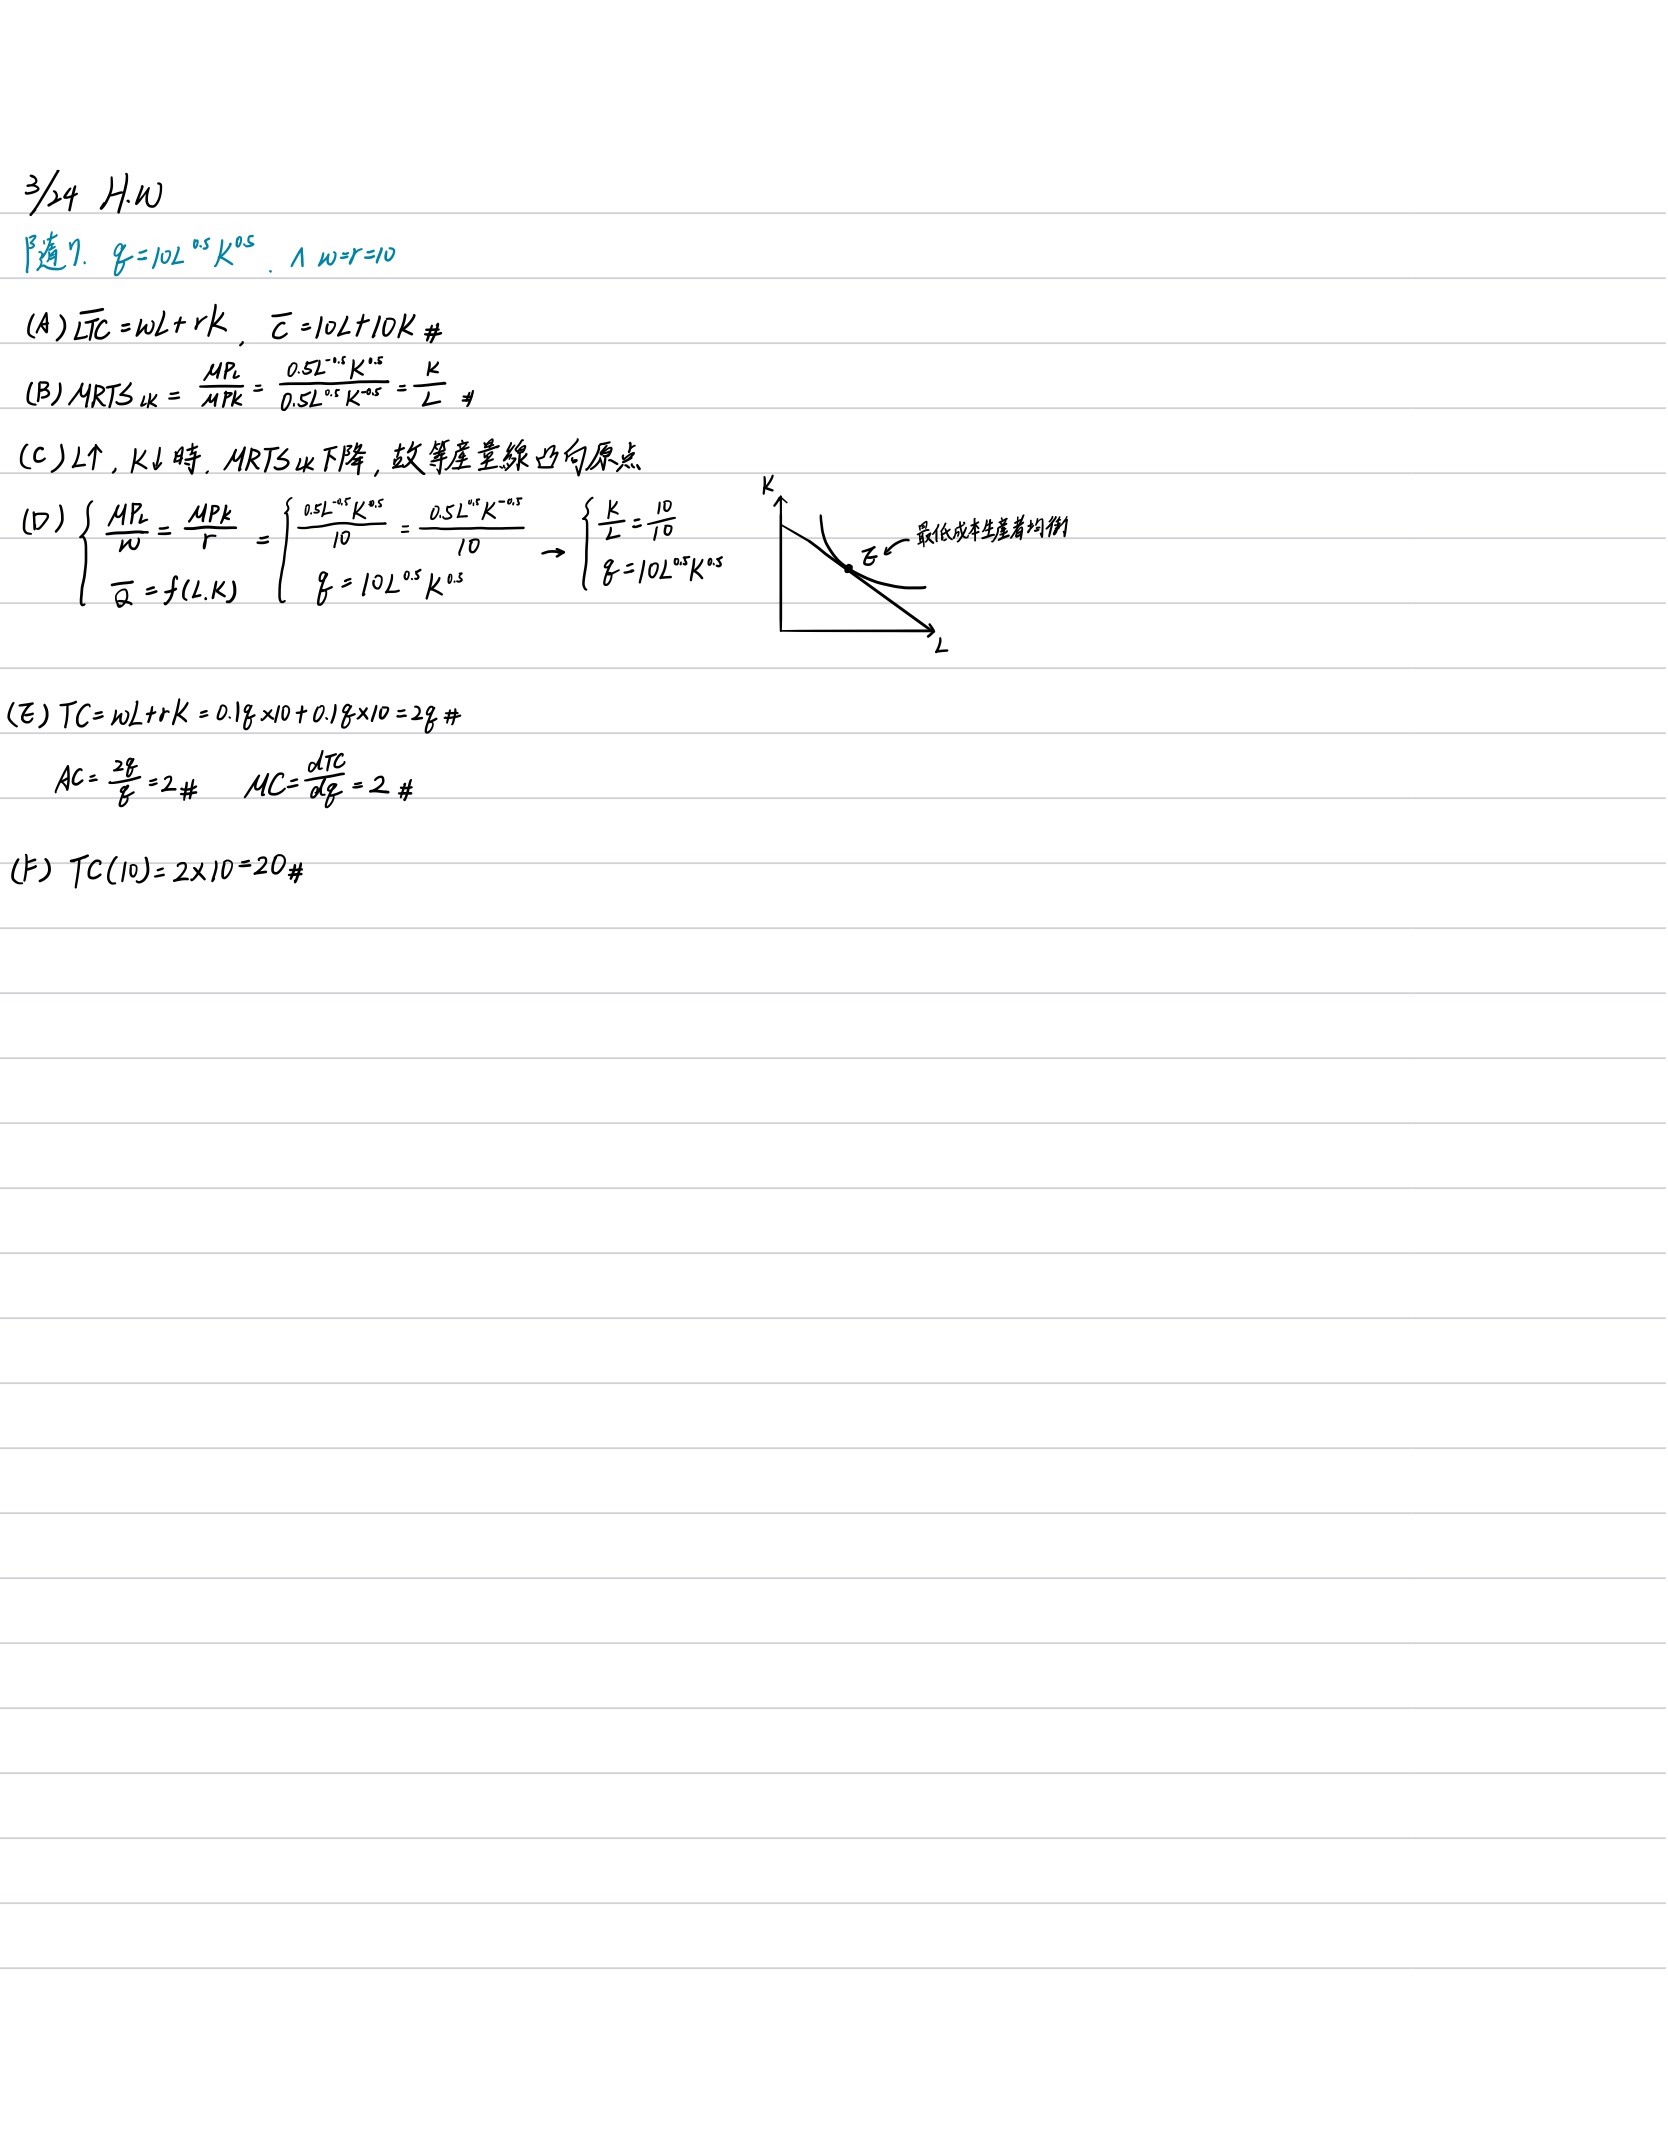 3/24 H.W
隨7. q=10L^0.5 K^0.5 . ∧ w=r=10
(A) L̅T̅C̅ = wL + rK , C̅ = 10L + 10K #
(B) MRTS_LK = MP_L / MP_K = 0.5L^-0.5 K^0.5 / 0.5L^0.5 K^-0.5 = K/L #
(C) L↑, K↓ 時. MRTS_LK 下降, 故等產量線凸向原点
(D) { MP_L/w = MP_K/r = { 0.5L^-0.5 K^0.5 / 10 = 0.5L^0.5 K^-0.5 / 10 → { K/L = 10/10
Q̅ = f(L.K) q = 10L^0.5 K^0.5 q = 10L^0.5 K^0.5
K
E ← 最低成本生產者均衡
L
(E) TC = wL + rK = 0.1q×10 + 0.1q×10 = 2q #
AC = 2q/q = 2 # MC = dTC/dq = 2 #
(F) TC(10) = 2×10 = 20 #